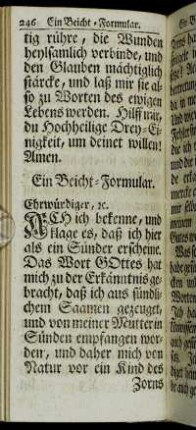 246 Ein Beicht-Formular.
tig rühre, die Wunden
heylsamlich verbinde, und
den Glauben mächtiglich
stärcke, und laß mir sie al-
so zu Worten des ewigen
Lebens werden. Hilff mir,
du Hochheilige Drey-Ei-
nigkeit, um deinet willen!
Amen.
Ein Beicht-Formular.
Ehrwürdiger, ꝛc.
ICH ich bekenne, und
klage es, daß ich hier
als ein Sünder erscheine.
Das Wort GOttes hat
mich zu der Erkänntnis ge-
bracht, daß ich aus sündli-
chem Saamen gezeuget,
und von meiner Mutter in
Sünden empfangen wor-
den, und daher mich von
Natur vor ein Kind des
Zorns